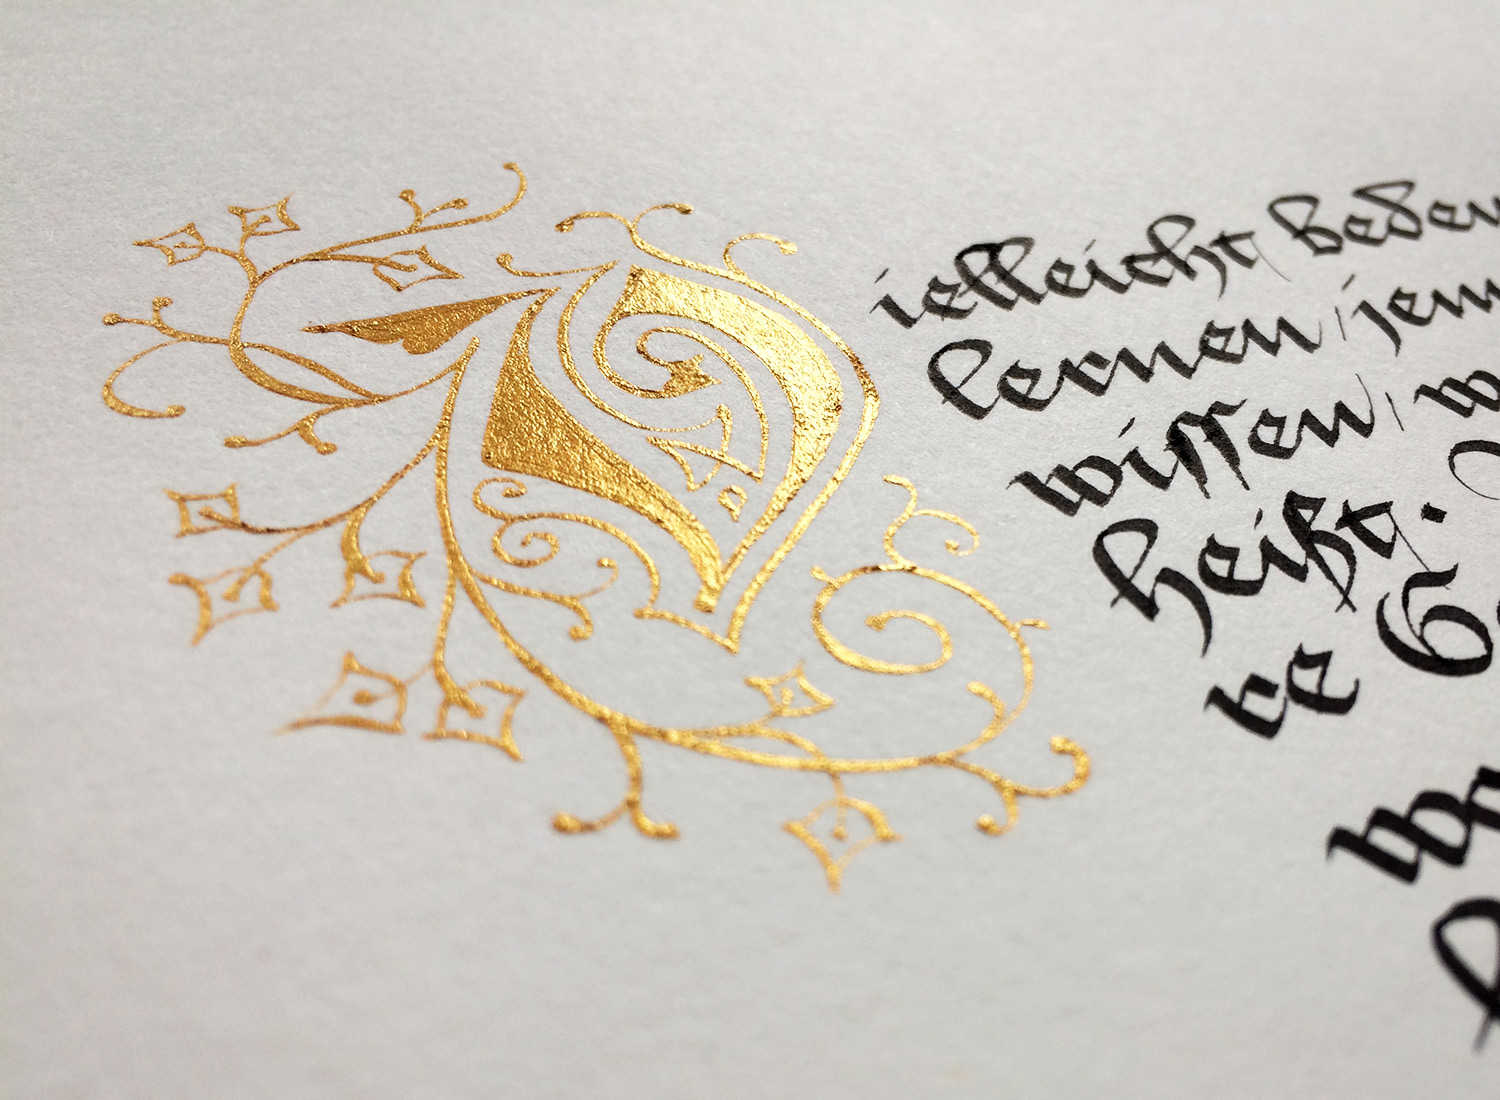 Vielleicht bedeu
lernen, jem
wiſſen, w
heißt.
re